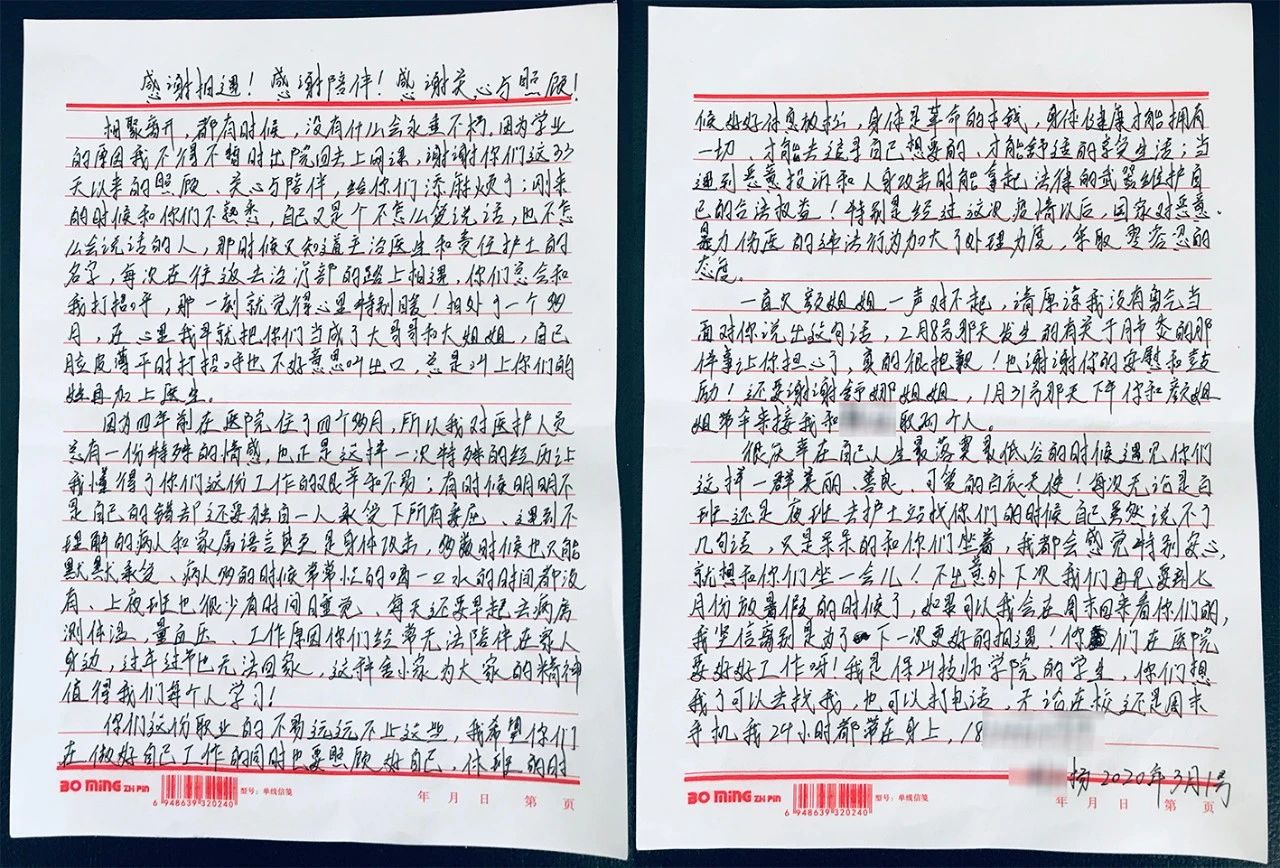 感谢相遇！感谢陪伴！感谢关心与照顾！
相聚离开，都有时候，没有什么会永垂不朽，因为学业
的原因我不得不暂时出院回去上网课，谢谢你们这33
天以来的照顾、关心与陪伴，给你们添麻烦了；刚来
的时候和你们不熟悉，自己又是个不怎么爱说话，也不怎
么会说话的人，那时候只知道主治医生和责任护士的
名字，每次在往返去治疗部的路上相遇，你们总会和
我打招呼，那一刻就觉得心里特别暖！相处了一个多
月，在心里我早就把你们当成了大哥哥和大姐姐，自己
脸皮薄平时打招呼也不好意思叫出口，总是叫上你们的
姓再加上医生。
因为四年前在医院住了四个多月，所以我对医护人员
总有一份特殊的情感，也正是这样一次特殊的经历让
我懂得了你们这份工作的艰辛和不易；有时候明明不
是自己的错却还要独自一人承受下所有委屈、遇到不
理解的病人和家属语言甚至是身体攻击，多数时候也只能
默默承受、病人多的时候常常忙的喝一口水的时间都没
有、上夜班也很少有时间睡觉、每天还要早起去病房
测体温，量血压、工作原因你们经常无法陪伴在家人
身边，过年过节也无法回家，这种舍小家为大家的精神
值得我们每个人学习！
你们这份职业的不易远远不止这些，我希望你们
在做好自己工作的同时也要照顾好自己，休班的时
BO MING ZHI PIN
6 948639 320240
型号：单线信笺
年 月 日 第 页
候好好休息放松，身体是革命的本钱，身体健康才能拥有
一切、才能去追寻自己想要的、才能舒适的享受生活；当
遇到恶意投诉和人身攻击时能拿起法律的武器维护自
己的合法权益！特别是经过这次疫情以后，国家对恶意、
暴力伤医的违法行为加大了处理力度，采取零容忍的
态度。
一直欠颜姐姐一声对不起，请原谅我没有勇气当
面对你说出这句话，2月8号那天发生的有关于月市委的那
件事让你担心了，真的很抱歉！也谢谢你的安慰和鼓
励！还要谢谢舒娜姐姐，1月31号那天下午你和颜姐
姐带伞来接我和
取的个人。
很庆幸在自己人生最落寞最低谷的时候遇见你们
这样一群美丽、善良、可爱的白衣天使！每次无论是白
班还是夜班去护士站找你们的时候自己虽然说不了
几句话，只是呆呆的和你们坐着，我都会感觉特别安心，
就想和你们坐一会儿！不出意外下次我们再见要到七
月份放暑假的时候了，如果可以我会在周末回来看你们的，
我坚信离别是为了下一次更好的相遇！你们在医院
要好好工作呀！我是保山技师学院的学生，你们想
我了可以去找我，也可以打电话，无论在校还是周末
手机我24小时都带在身上，18
扬 2020年3月1号
BO MING ZHI PIN
6 948639 320240
型号：单线信笺
年 月 日 第 页